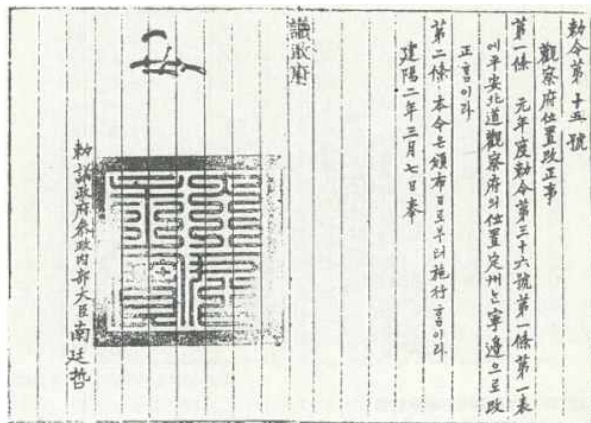 勅令第十五號
觀察府位置改正事
第一條 元年度勅令第三十六號第一條第一表
에平安北道觀察府의位置定州는寧邊으로改
正홈이라
第二條 本令은頒布日로부터施行홈이라
建陽二年三月七日奉
議政府
勅議政府參政內部大臣南廷哲